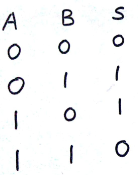 A B S
0 0 0
0 1 1
1 0 1
1 1 0